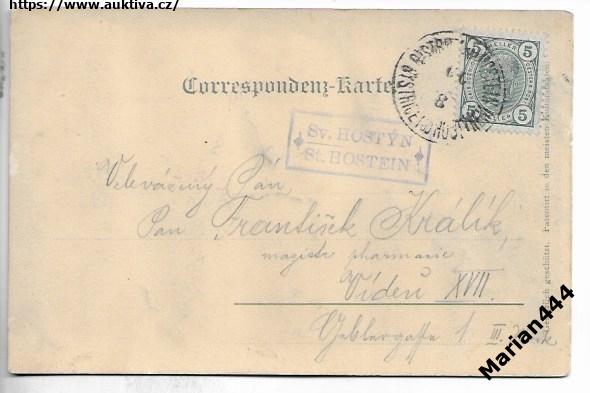 https://www.auktiva.cz/
Correspondenz-Karte
5 HELLER 5
5 5
Sv. HOSTÝN
St. HOSTEIN
Velevážený Pán,
Pan František Králík,
magistr pharmacie
Vídeň XVII.
Geblergasse 1 III.
Marian444